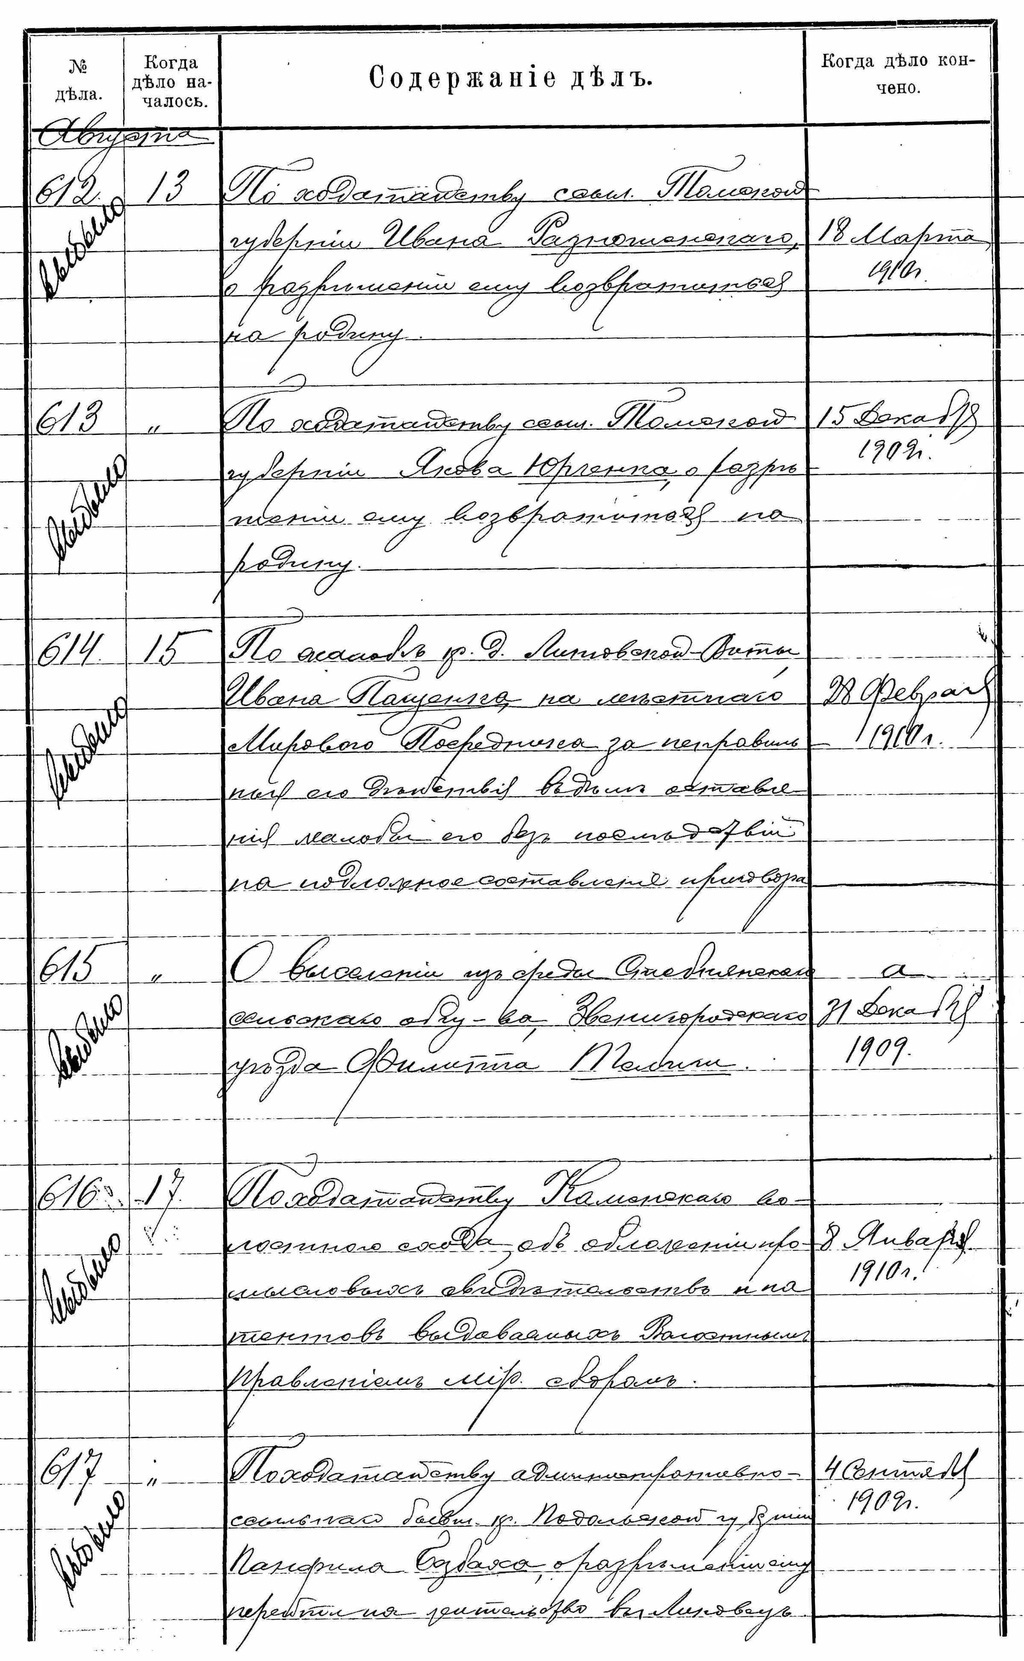 № дѣла.
Когда дѣло началось.
Содержаніе дѣлъ.
Когда дѣло кончено.
Августа
612 13 По ходатайству ссыл. Томской
губерніи Ивана
о разрѣшеніи ему возвратиться
на родину.
18 Марта
1910г.
выбыло
613 „ По ходатайству ссыл. Томской
губерніи Якова Юрченка, о разрѣ-
шеніи ему возвратиться на
родину.
15 Декабря
1909г.
выбыло
614 15 По жалобѣ кр. д.
Ивана Пащенка, на мѣстнаго
Мирового Посредника за неправиль
ныя его дѣйствія въ оставле
нія жалобы его безъ послѣдствій
на подложное составленіе приговора
28 Февраля
1910г.
выбыло
615 „ О выселеніи изъ среды
сельскаго общ-ва, Звенигородскаго
уѣзда Филиппа
а
31 Декабря
1909.
выбыло
616 17 По ходатайству Каменскаго во-
лостного схода, объ обложеніи про-
мысловыхъ свидѣтельствъ и па
тентовъ выдаваемыхъ Волостнымъ
Правленіемъ мір. сборомъ.
8 Января
1910г.
выбыло
617 „ По ходатайству административно-
ссыльнаго бывш. кр. Подольской губерніи
Панфила о разрѣшеніи ему
перейти на жительство въ Липовецъ
4 Сентября
1909г.
выбыло